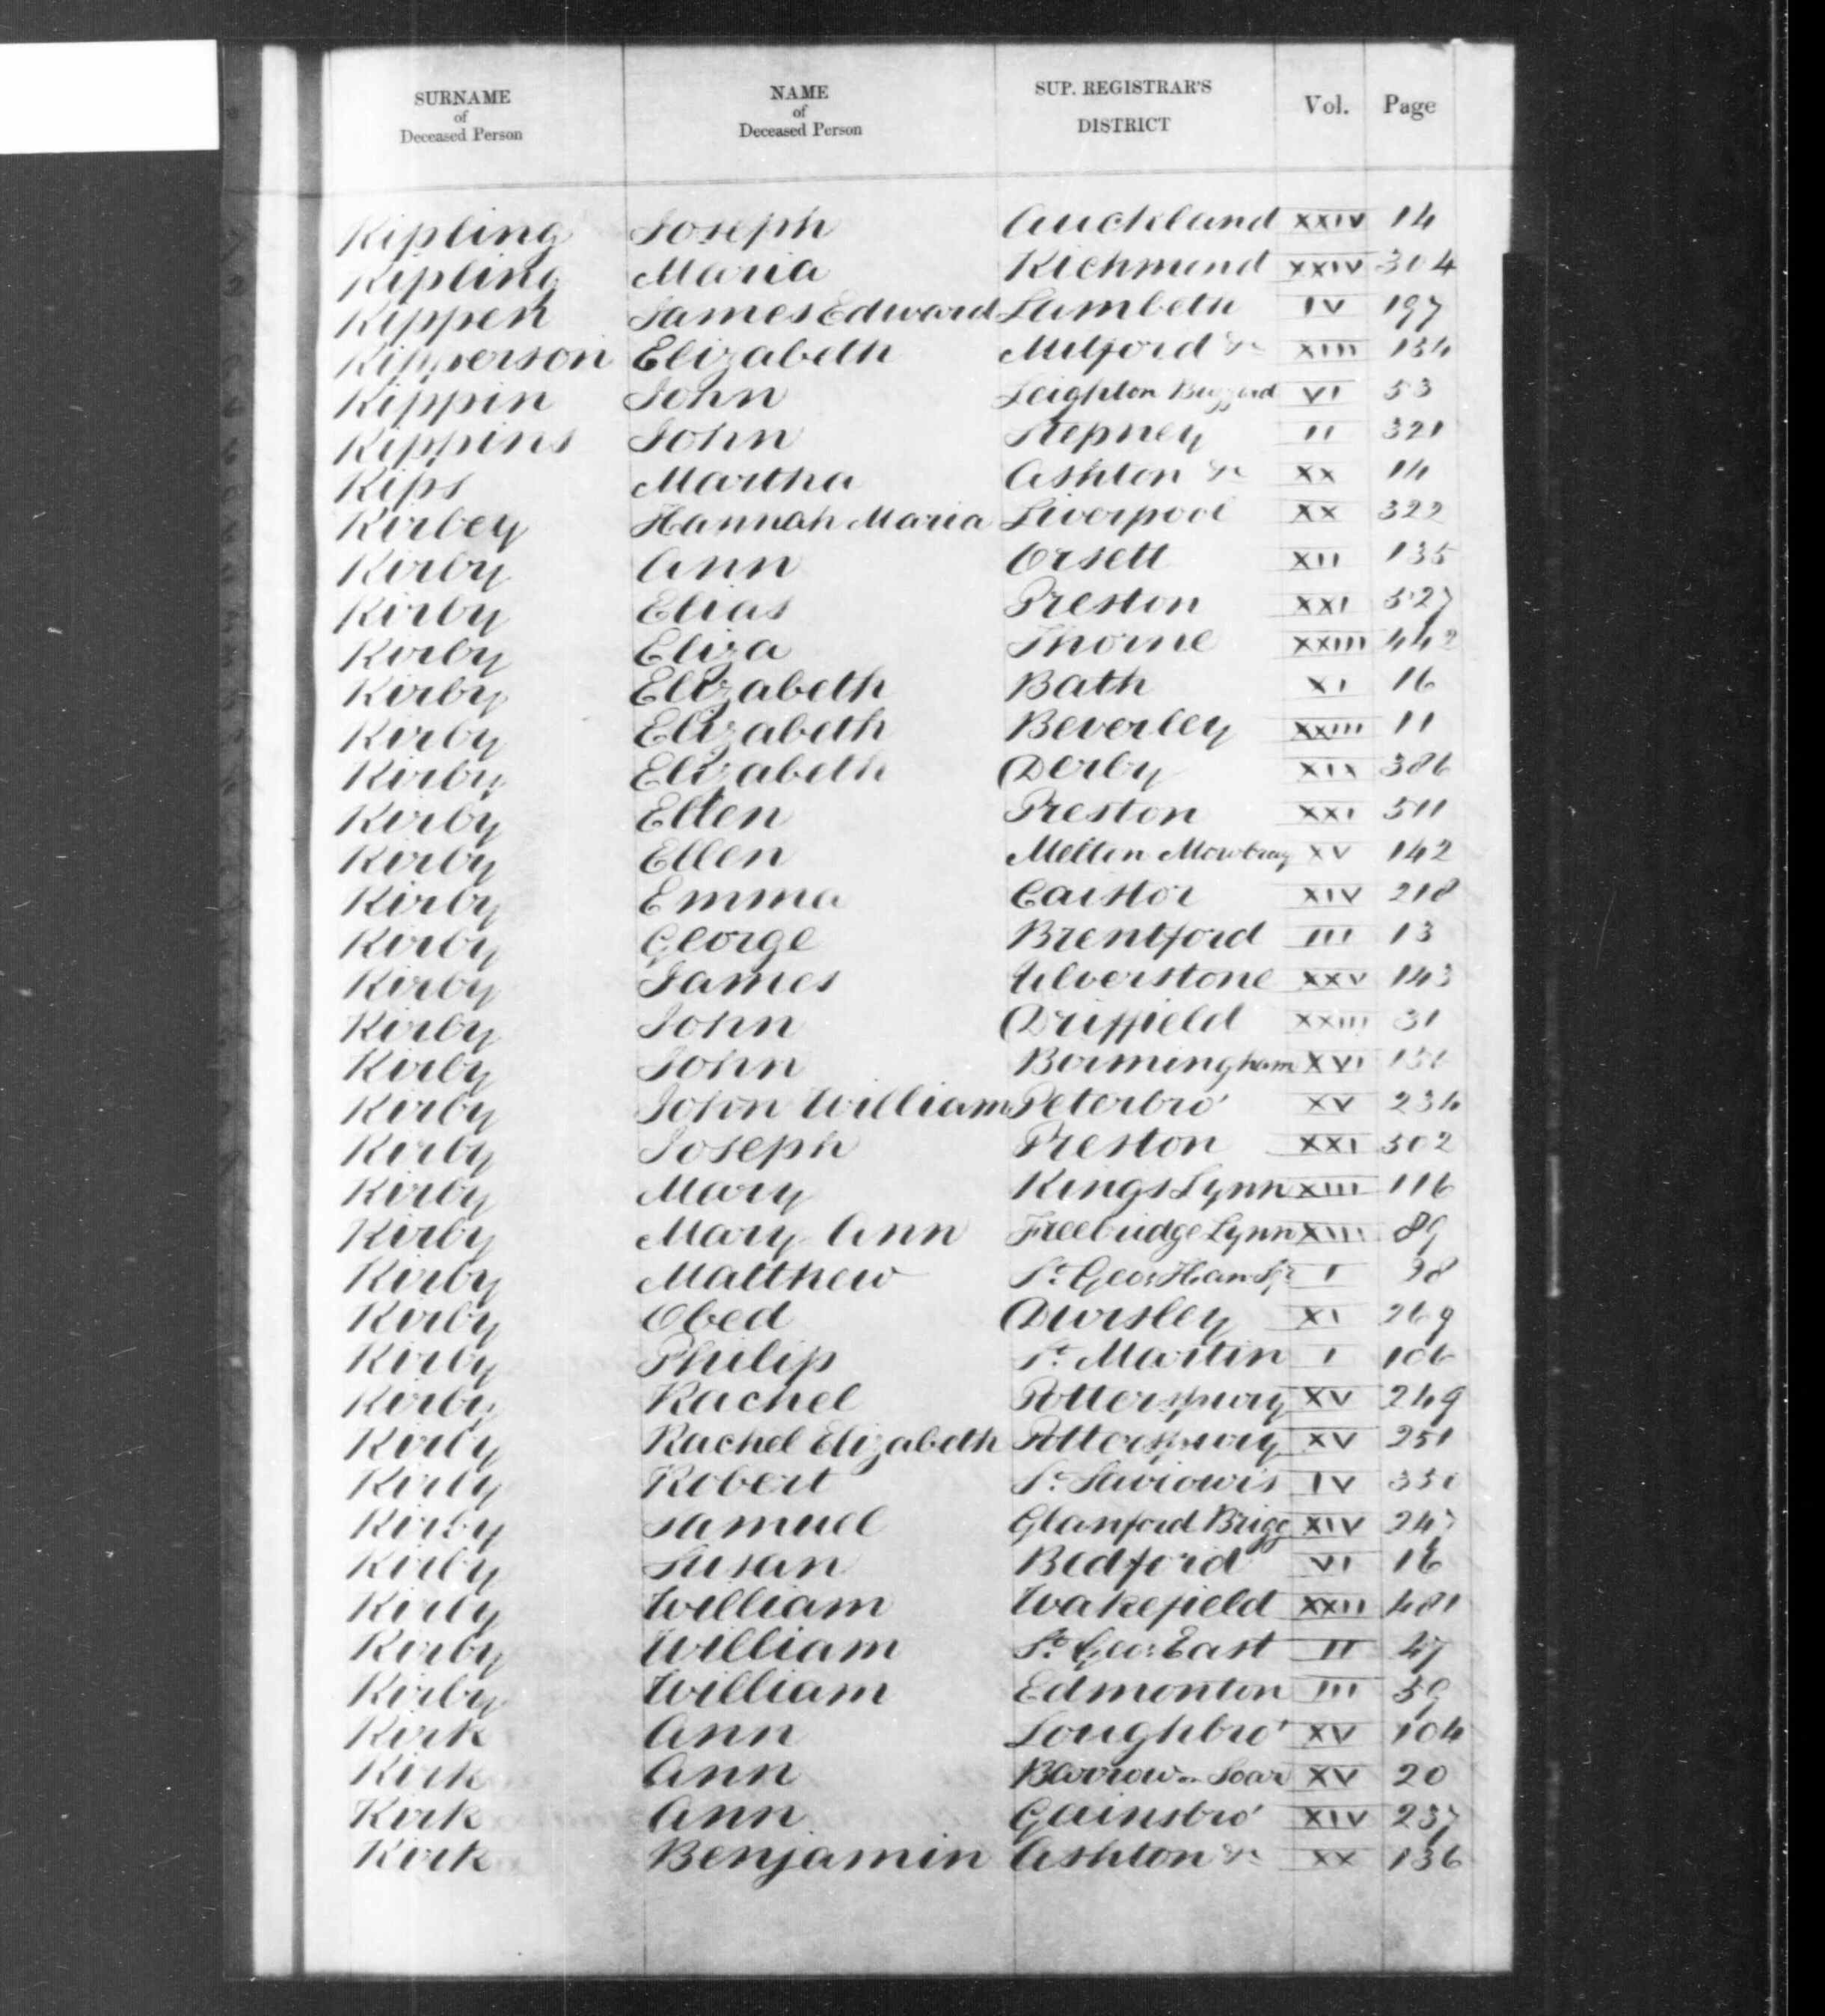 SURNAME of Deceased Person NAME of Deceased Person SUP. REGISTRAR'S DISTRICT Vol. Page
Kipling Joseph Auckland XXIV 14
Kipling Maria Richmond XXIV 304
Kippen James Edward Lambeth IV 197
Kipperson Elizabeth Mitford &c XIII 134
Kippin John Leighton Buzzard VI 53
Kippins John Stepney II 321
Kips Martha Ashton &c XX 14
Kirbey Hannah Maria Liverpool XX 322
Kirby Ann Orsett XII 135
Kirby Elias Preston XXI 527
Kirby Eliza Thorne XXIII 442
Kirby Elizabeth Bath XI 16
Kirby Elizabeth Beverley XXIII 11
Kirby Elizabeth Derby XIX 386
Kirby Ellen Preston XXI 511
Kirby Ellen Melton Mowbray XV 142
Kirby Emma Caistor XIV 218
Kirby George Brentford III 13
Kirby James Ulverstone XXV 143
Kirby John Driffield XXIII 31
Kirby John Birmingham XVI
Kirby John William Peterbro' XV 234
Kirby Joseph Preston XXI 502
Kirby Mary Kings Lynn XIII 116
Kirby Mary Ann Freebridge Lynn XIII 89
Kirby Matthew St. Geo: Han Sqr I 98
Kirby Obed Dursley XI 269
Kirby Philip St. Martin I 106
Kirby Rachel Potterspury XV 249
Kirby Rachel Elizabeth Potterspury XV 251
Kirby Robert St. Saviour's IV
Kirby Samuel Glanford Brigg XIV 247
Kirby Susan Bedford VI 16
Kirby William Wakefield XXII 481
Kirby William St. Geo: East II 47
Kirby William Edmonton III 59
Kirk Ann Loughbro' XV 104
Kirk Ann Barrow on Soar XV 20
Kirk Ann Gainsbro' XIV 237
Kirk Benjamin Ashton &c XX 136